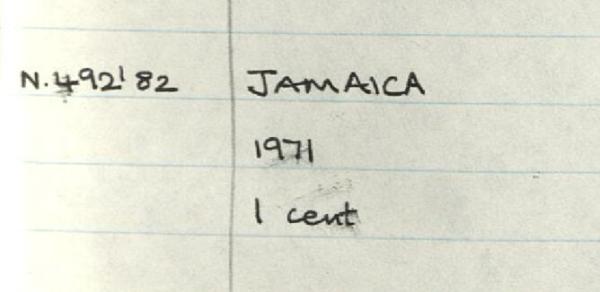 N.492'82 JAMAICA
1971
1 cent